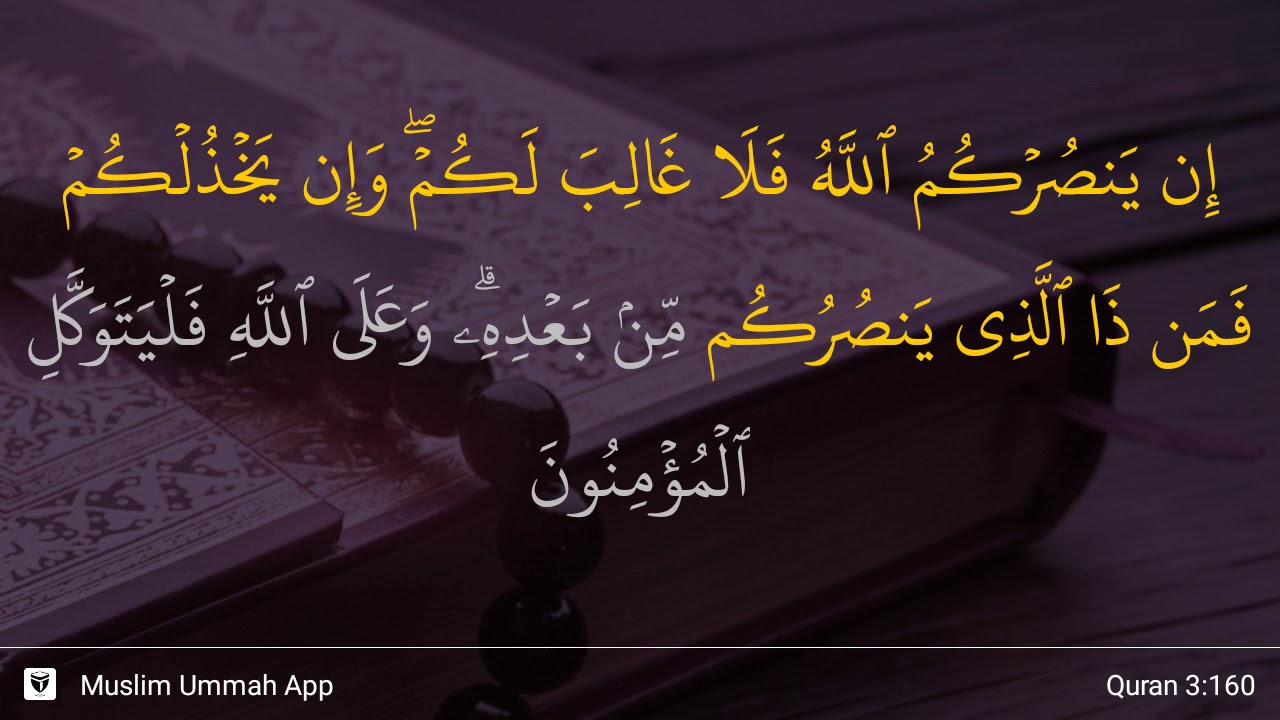 إِن يَنصُرْكُمُ ٱللَّهُ فَلَا غَالِبَ لَكُمْ ۖ وَإِن يَخْذُلْكُمْ
فَمَن ذَا ٱلَّذِى يَنصُرُكُم مِّنۢ بَعْدِهِۦ ۗ وَعَلَى ٱللَّهِ فَلْيَتَوَكَّلِ
ٱلْمُؤْمِنُونَ
Muslim Ummah App
Quran 3:160